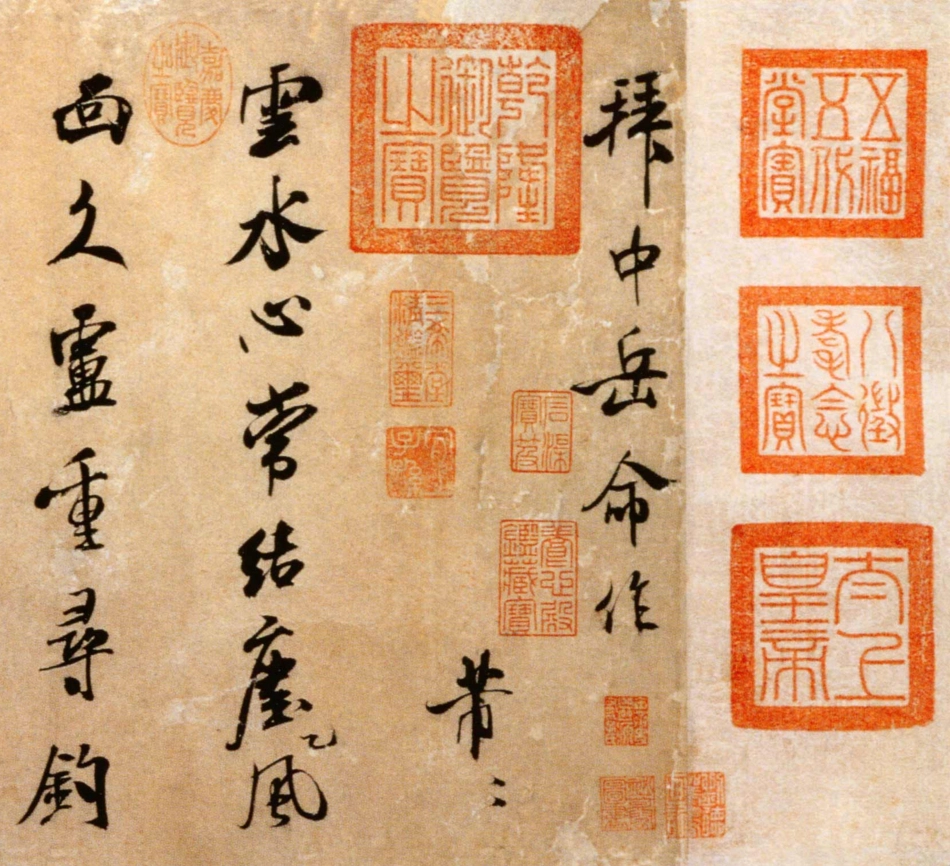 五福五代堂寶
八徵耄念之寶
太上皇帝
拜中岳命作
石渠寶笈
養心殿鑑藏寶
芾〻
乾隆御覽之寶
三希堂精鑑璽
宜子孫
雲水心常結塵風
嘉慶御覽之寶
面久盧重尋釣